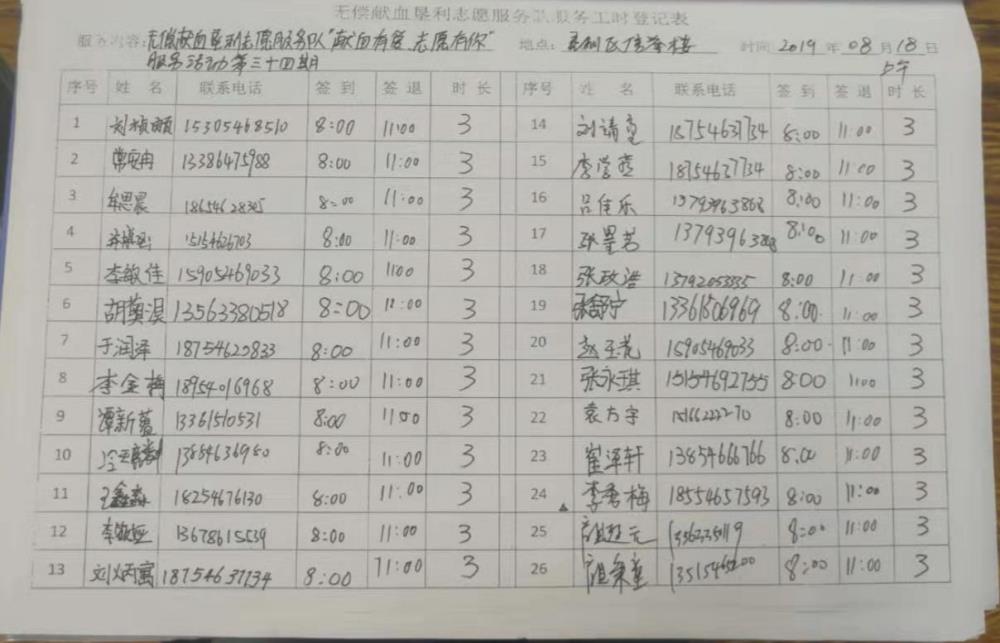 无偿献血垦利志愿服务队服务工时登记表
服务内容:无偿献血垦利志愿服务队"献血有爱 志愿有你" 地点: 时间 2019 年 08 月 18 日
服务活动第三十四期 上午
序号 姓 名 联系电话 签 到 签 退 时 长 序号 姓 名 联系电话 签 到 签 退 时 长
1 15305468510 8:00 11:00 3 14 刘靖童 18754637734 8:00 11:00 3
2 13386475988 8:00 11:00 3 15 李学燕 18754637734 8:00 11:00 3
3 牟思晨 8:00 11:00 3 16 吕佳乐 8:00 11:00 3
4 15154626703 8:00 11:00 3 17 8:00 11:00 3
5 李敏佳 15905469033 8:00 1100 3 18 张政浩 8:00 11:00 3
6 13563380518 8:00 11:00 3 19 张舒宁 13361506969 8:00 11:00 3
7 于润泽 18754623833 8:00 11:00 3 20 15905469033 8:00 11:00 3
8 李金梅 18954016968 8:00 11:00 3 21 张永琪 15154692755 8:00 1100 3
9 谭新蕾 13361510531 8:00 1100 3 22 袁方宇 8:00 11:00 3
10 13854636980 8:00 11:00 3 23 崔泽轩 13854666766 8:00 11:00 3
11 王鑫淼 18254676130 8:00 11:00 3 24 李秀梅 18554657593 8:00 11:00 3
12 13678615539 8:00 11:00 3 25 8:00 11:00 3
13 刘炳寓 18754637734 8:00 11:00 3 26 8:00 11:00 3